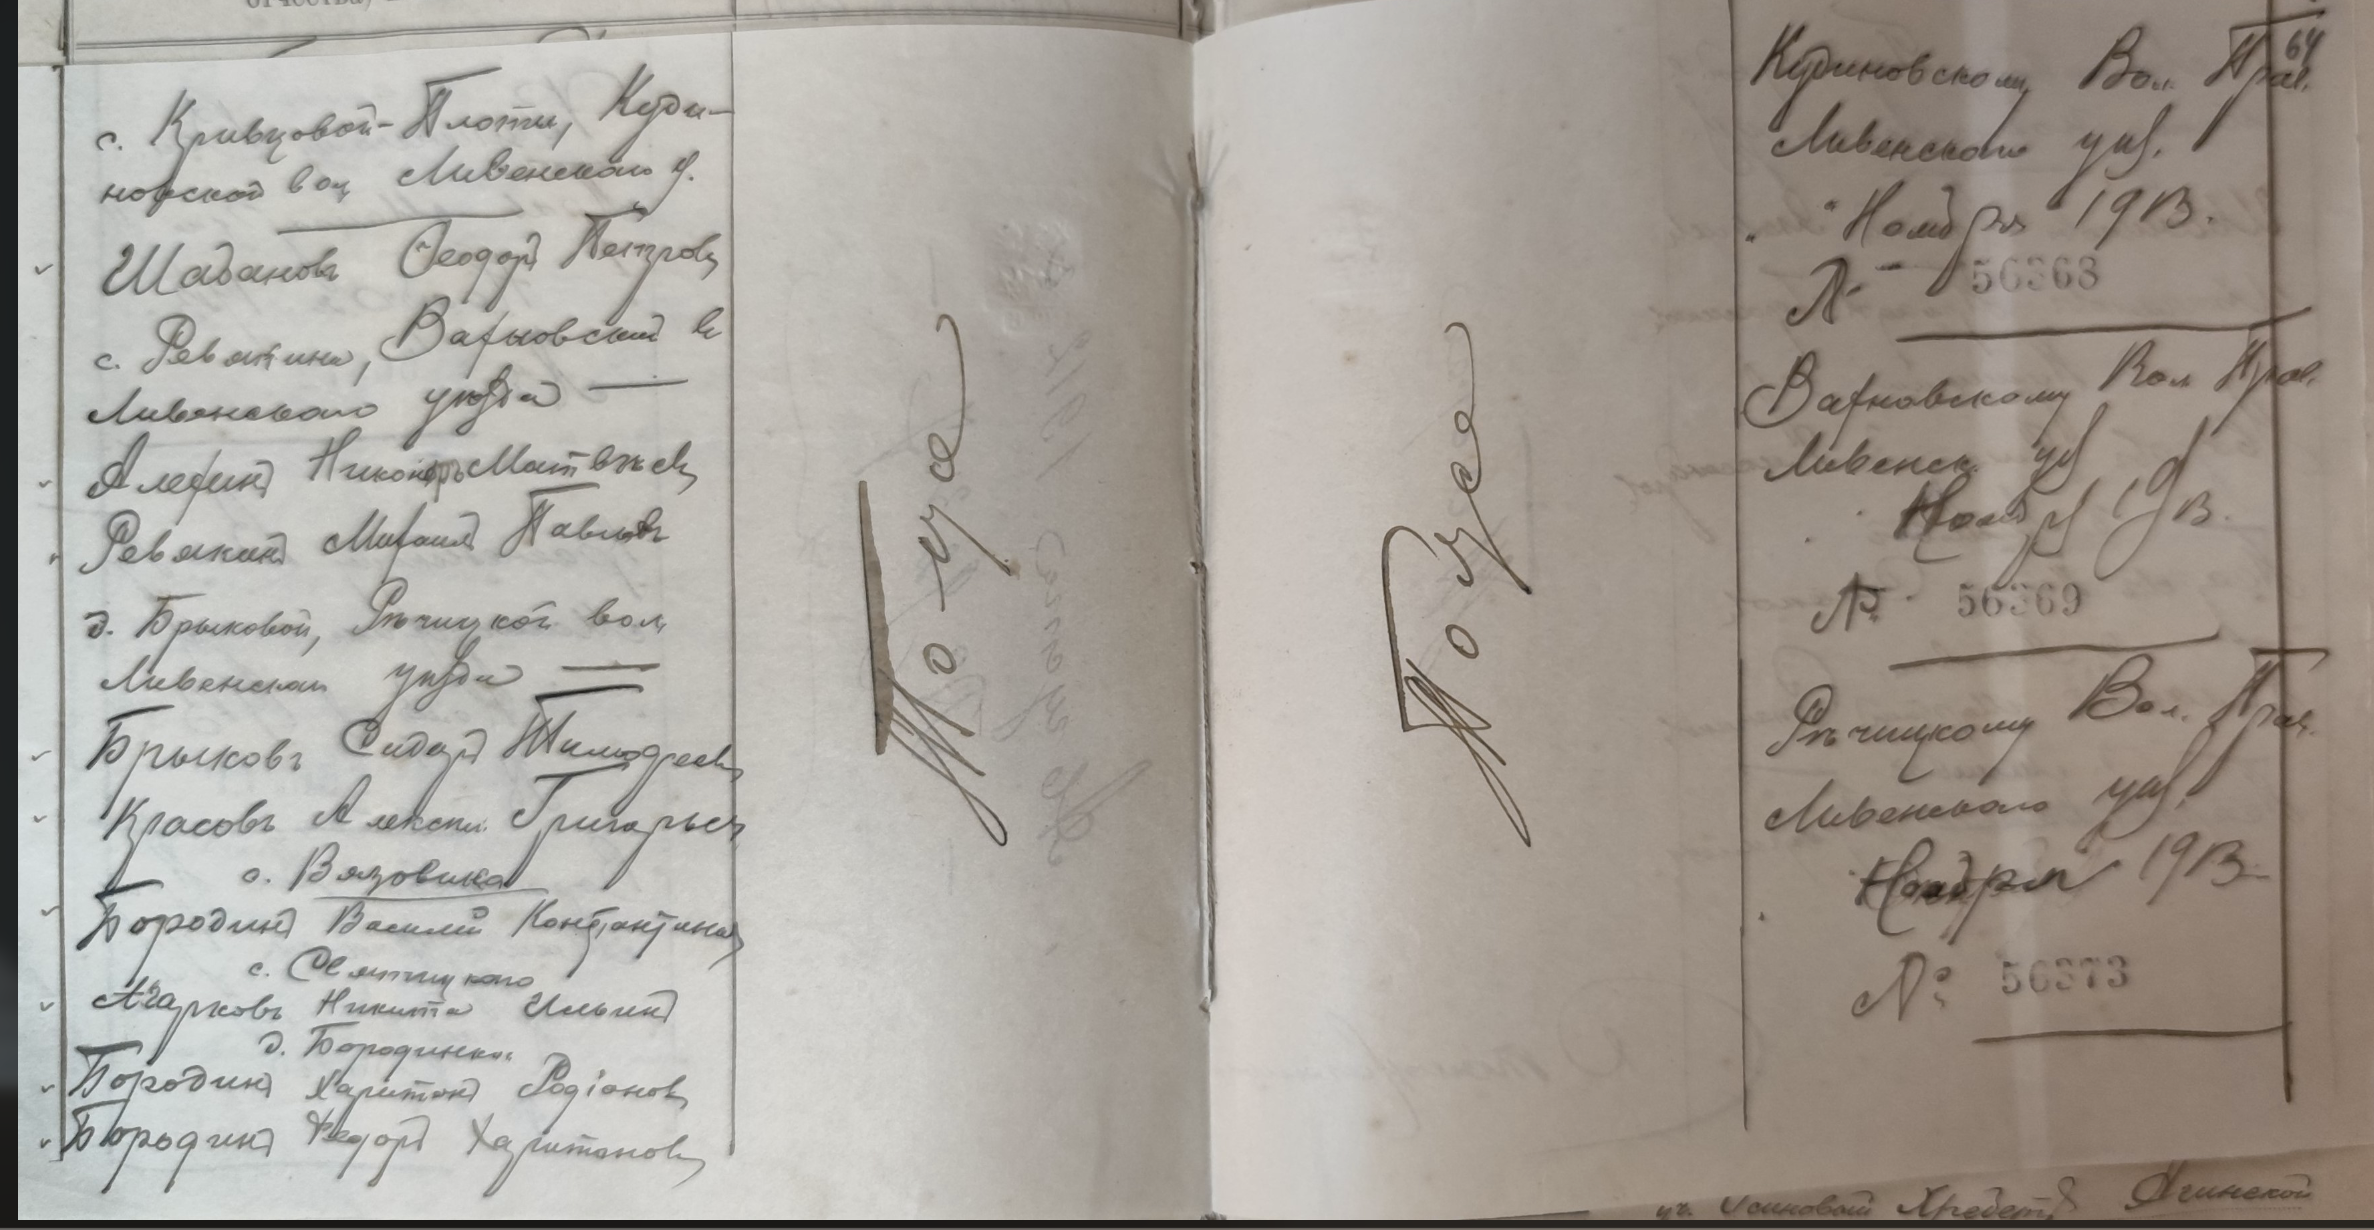 отчества,
с. Кривцовой-Плоты, Куди-
новской вол Ливенскаго у.
Шабановъ Ѳеодоръ Петровъ
с. Ревякина, Вахновской в
Ливенскаго уѣзда —
Алехинъ Никоноръ Матвѣевъ
Ревякинъ Михаилъ Павловъ
д. Брыковой, Рѣчицкой вол,
Ливенскаго уѣзда —
Брыковъ Сидоръ Тимофеевъ
Красовъ Алексѣй Григорьев
д. Вязовика
Бородинъ Василий Константинов
с. Святицкаго
Агарковъ Никита Ильинъ
д. Бородинка
Бородинъ Харитонъ Родіоновъ
Бородинъ Федоръ Харитоновъ
Тоже
Тоже
64
Кудиновскому Вол. Прав.
Ливенскаго уѣз.
" Ноября 1913.
№ 56368
Вахновскому Вол Прав.
Ливенск. уѣз
Ноября 1913.
№ 56369
Рѣчицкому Вол. Прав.
Ливенскаго уѣз.
Ноября 1913
№ 56373
уч. Осиновый Хребетъ Ачинской